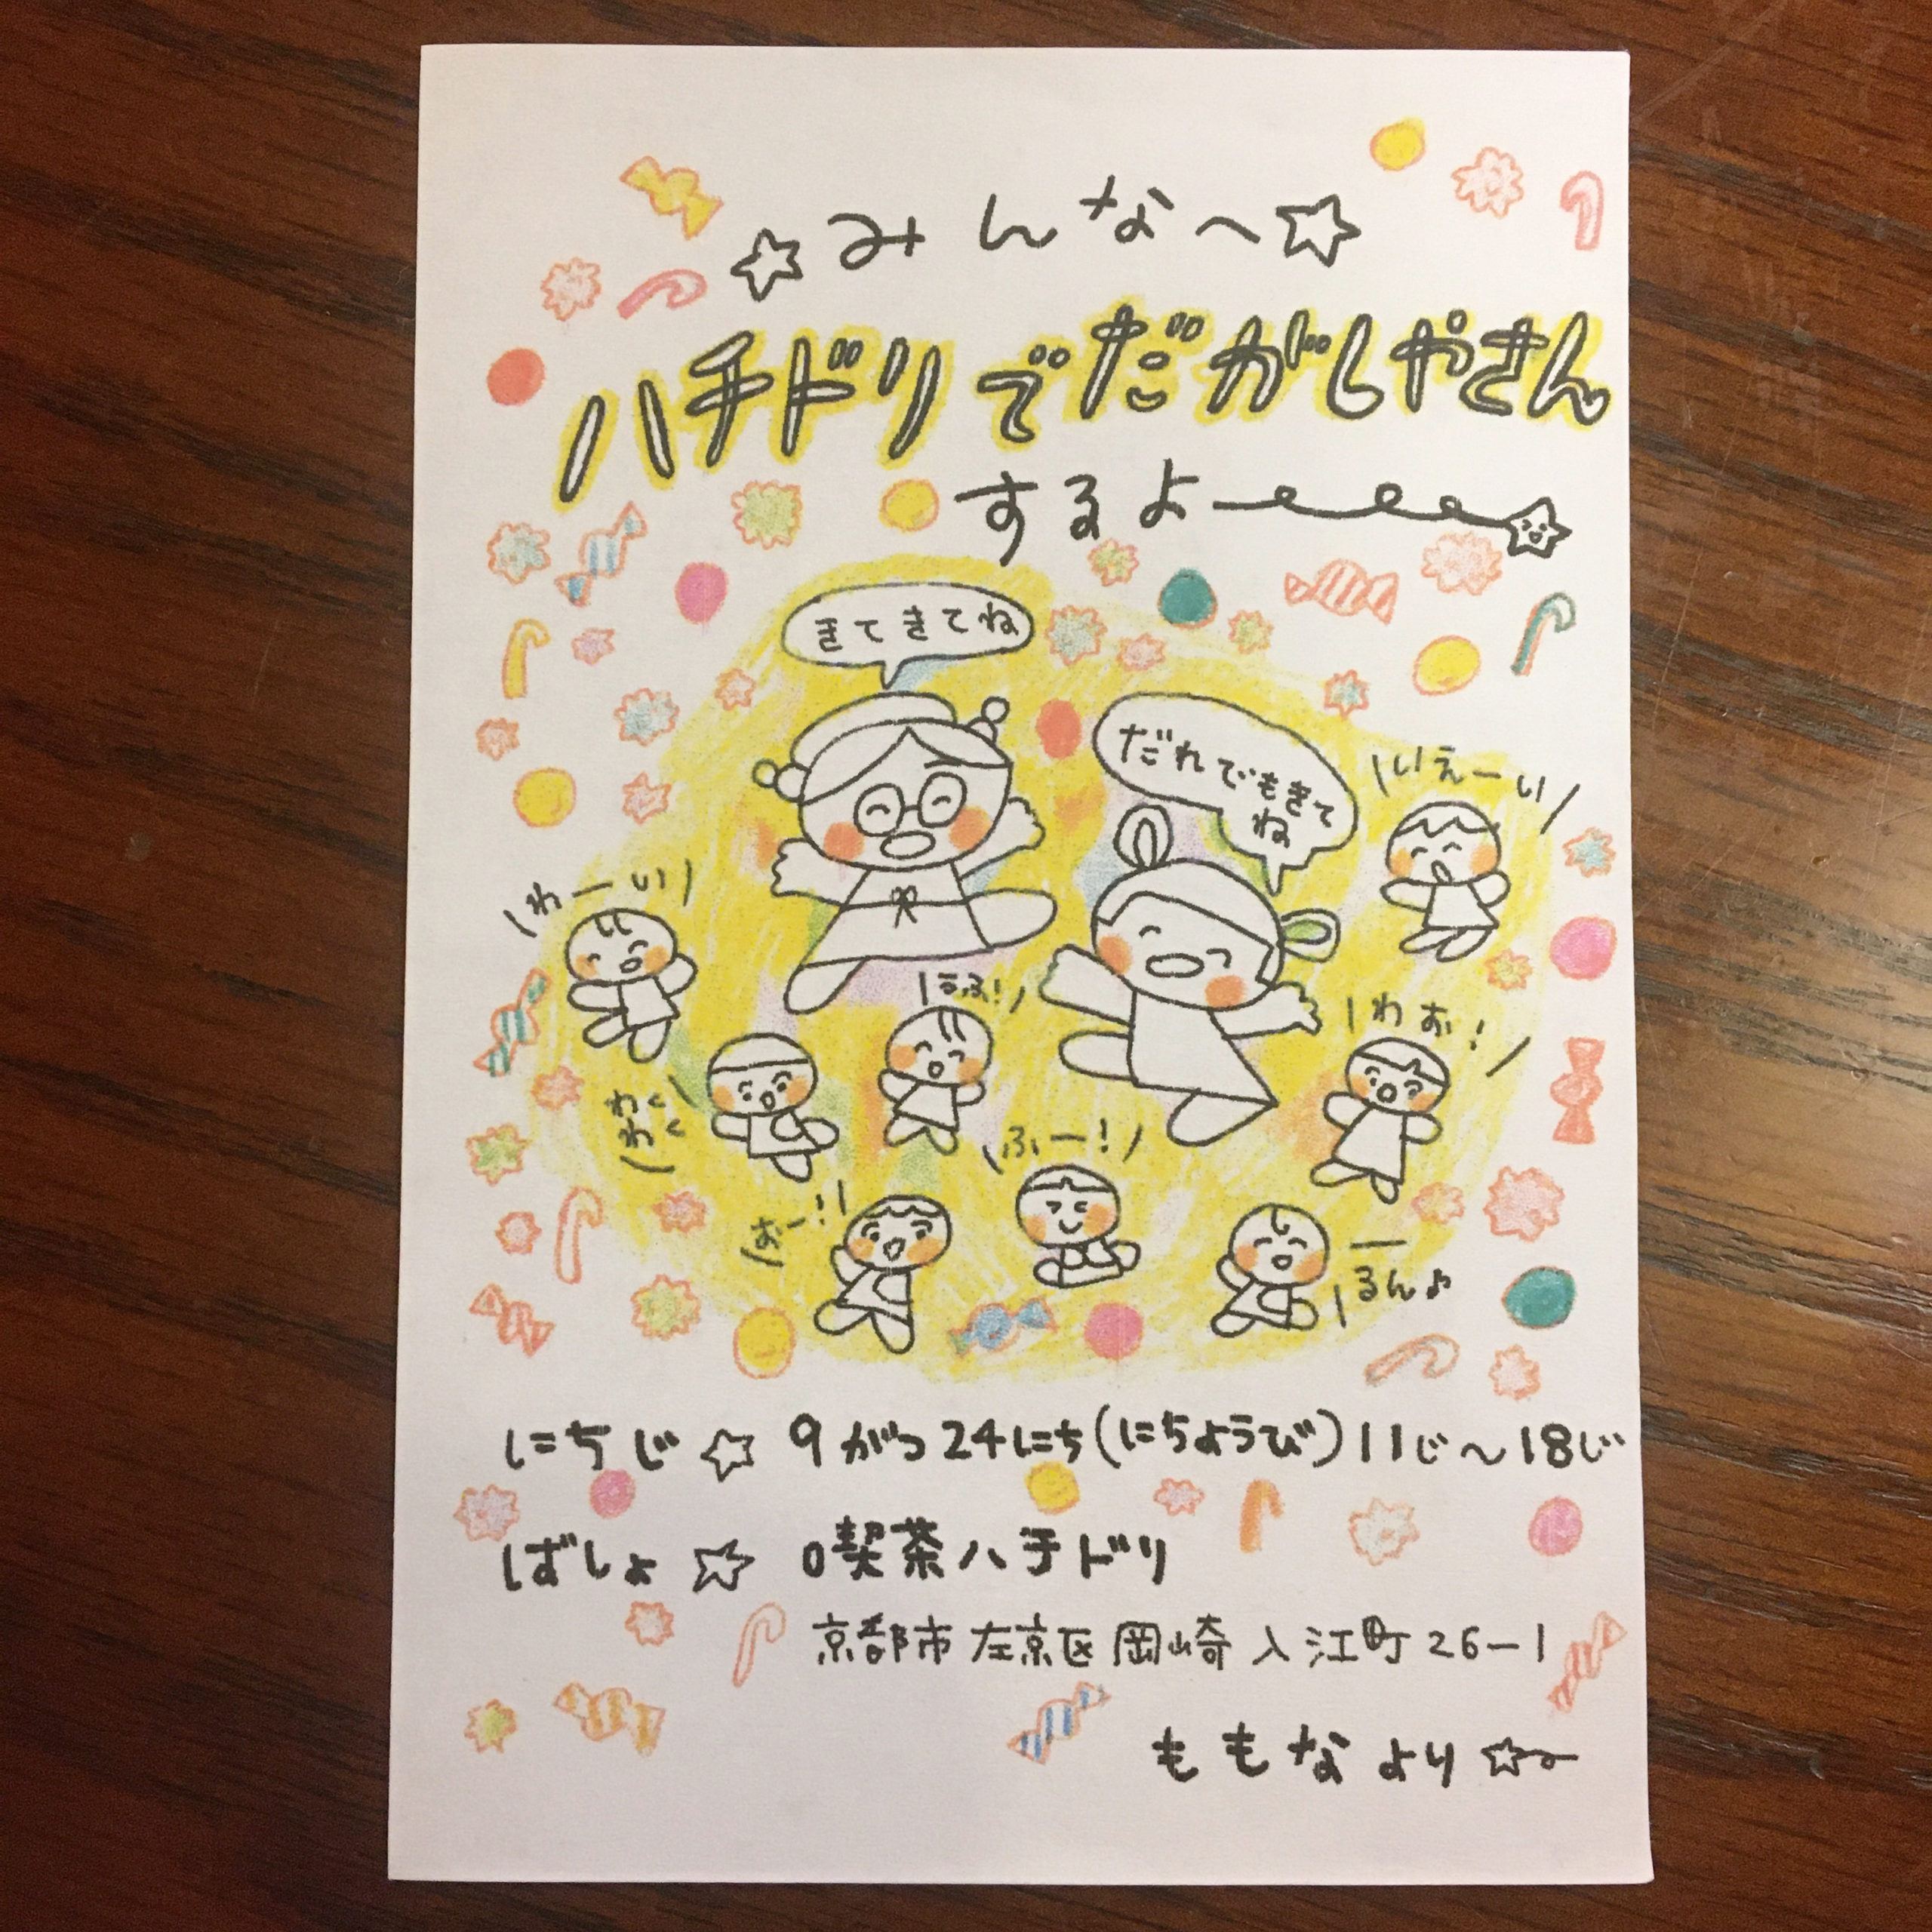 ☆みんなへ☆
ハチドリでだがしやさん
するよー
きてきてね
だれでもきて
ね
いえーい
わーい
うふふ!
わお!
わく
わく
ふー!
おー!
るん♪
にちじ☆ 9がつ24にち(にちようび)11じ〜18じ
ばしょ☆ 喫茶ハチドリ
京都市左京区岡崎入江町26-1
ももなより☆